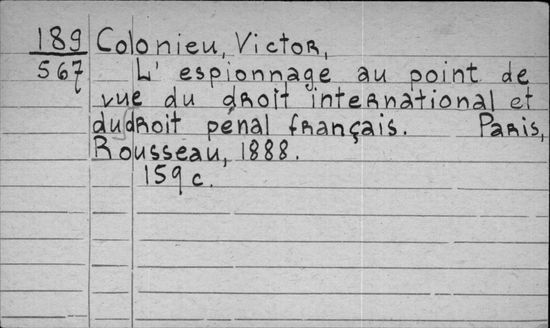 189 Colonieu, Victor,
567 L' espionnage au point de
vue du droit international et
du droit pénal français. Paris,
Rousseau, 1888.
159 c.